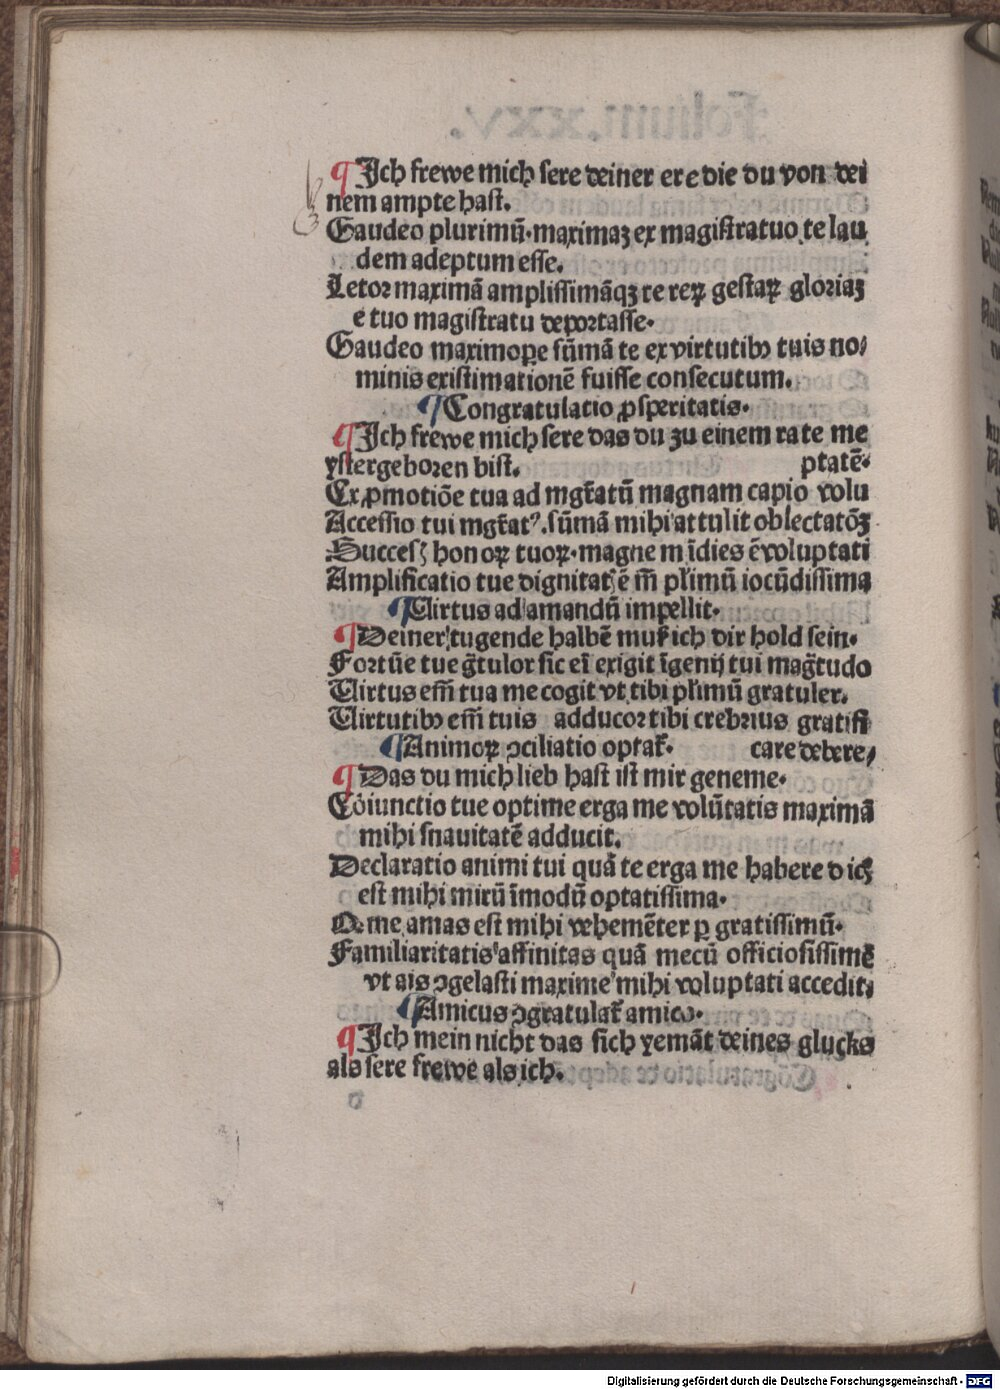 ¶ Ich frewe mich sere deiner ere die du von dei
nem ampte hast.
Gaudeo plurimū. maximaꝫ ex magistratuo te lau
dem adeptum esse.
Letor maximā amplissimāqꝫ te reꝝ gestaꝝ gloriaꝫ
e tuo magistratu deportasse.
Gaudeo maximoꝑe sūmā te ex virtutibꝰ tuis no/
minis existimationē fuisse consecutum.
¶ Congratulatio ꝓsperitatis.
¶ Ich frewe mich sere das du zu einem rate me
ystergeboren bist. ptatē.
Ex ꝓmotiōe tua ad mgr̄atū magnam capio volu
Accessio tui mgr̄atꝰ. sūmā mihi attulit oblectatōꝫ
Succesꝫ honoꝝ tuoꝝ. magne m īdies ē voluptati
Amplificatio tue dignitatꝭ ē m̄ pl̄imū iocūdissima
¶ Uirtus ad amandū impellit.
¶ Deiner tugende halbē muß ich dir hold sein.
Fortūe tue gr̄tulor sic eī exigit īgenij tui mag̃tudo
Uirtus em̄ tua me cogit vt tibi pl̄imū gratuler.
Uirtutibꝰ em̄ tuis adducor tibi crebrius gratifi
¶ Animoꝝ ↄciliatio optať. care debere/
¶ Das du mich lieb hast ist mir geneme.
Cōiunctio tue optime erga me volūtatis maximā
mihi snauitatē adducit.
Declaratio animi tui quā te erga me habere dicꝭ
est mihi mirū īmodū optatissima.
Qꝫ me amas est mihi vehemēter ꝑ gratissimū.
Familiaritatis affinitas quā mecū officiosissimē
vt ais ↄgelasti maxime mihi voluptati accedit.
¶ Amicus ↄgratulať amico.
¶ Ich mein nicht das sich yemāt deines glucks
als sere frewe als ich.
Digitalisierung gefördert durch die Deutsche Forschungsgemeinschaft - DFG